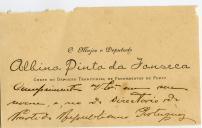 O Major e Deputado
Albino Pinto da Fonseca
Chefe do Deposito Territorial de Fardamentos do Porto
Cumprimenta V. Ex.ª em seu
nome, e no do Directorio do
Partido Republicano Portuguez